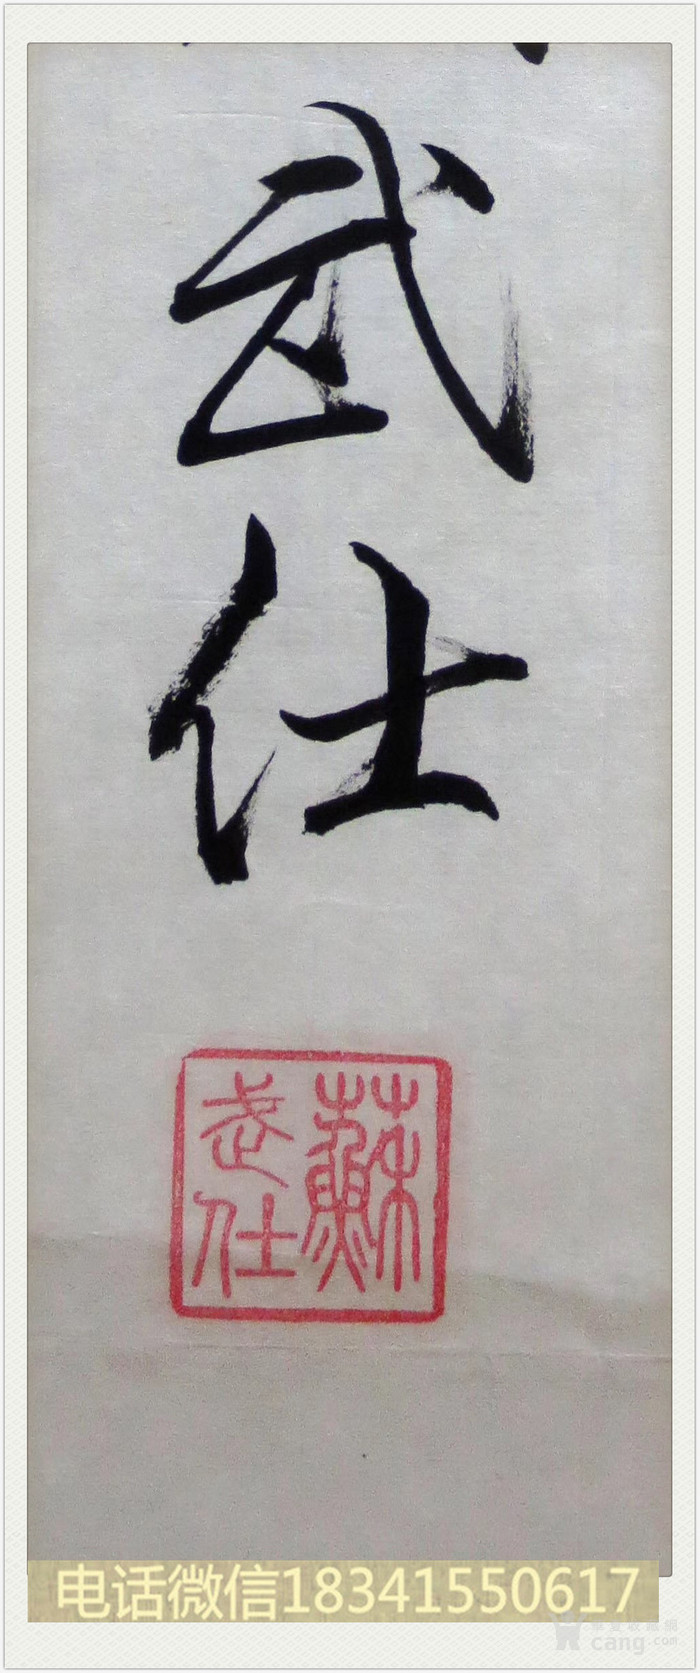 武
仕
蘇
武仕
电话微信18341550617
华夏收藏网
cang.com